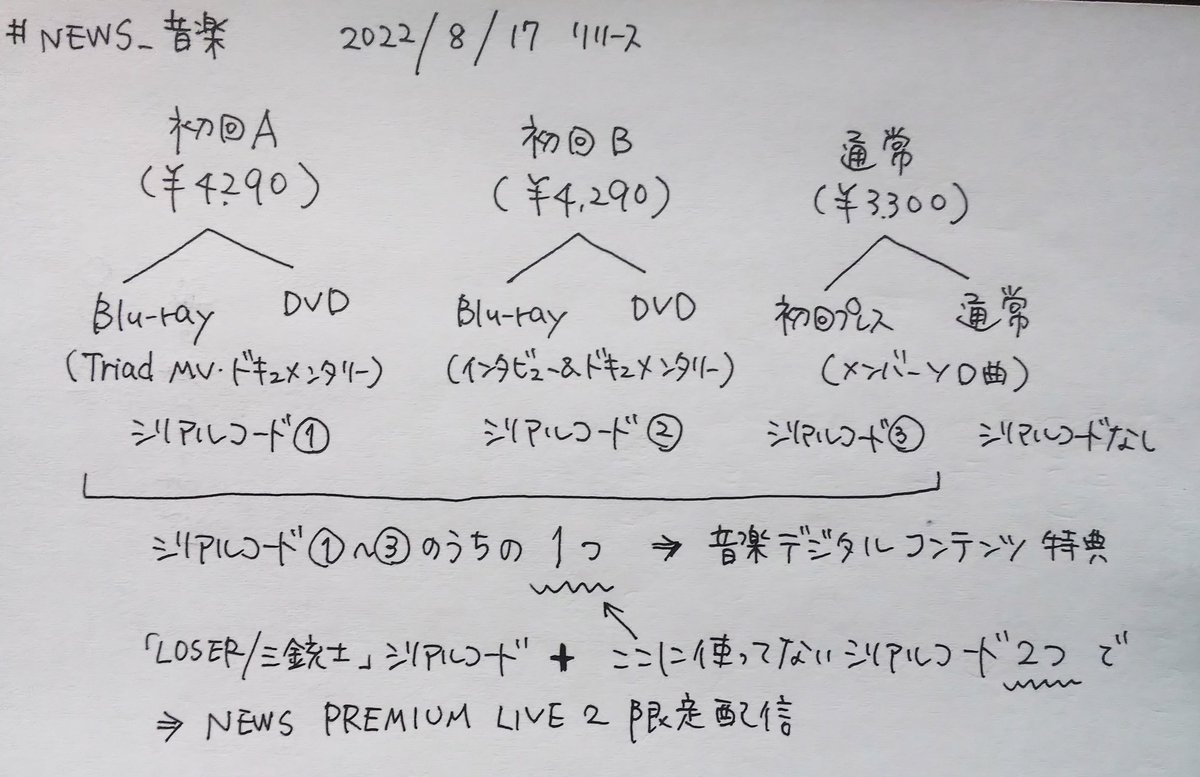 #NEWS_音楽 2022/8/17 リリース
初回A 初回B 通常
(¥4.290) (¥4,290) (¥3.300)
Blu-ray DVD Blu-ray DVD 初回プレス 通常
(Triad MV・ドキュメンタリー) (インタビュー&ドキュメンタリー) (メンバーソロ曲)
シリアルコード① シリアルコード② シリアルコード③ シリアルコードなし
シリアルコード①~③のうちの 1つ ⇒ 音楽デジタルコンテンツ特典
「LOSER/三銃士」シリアルコード + ここに使ってないシリアルコード2つで
⇒ NEWS PREMIUM LIVE 2 限定配信